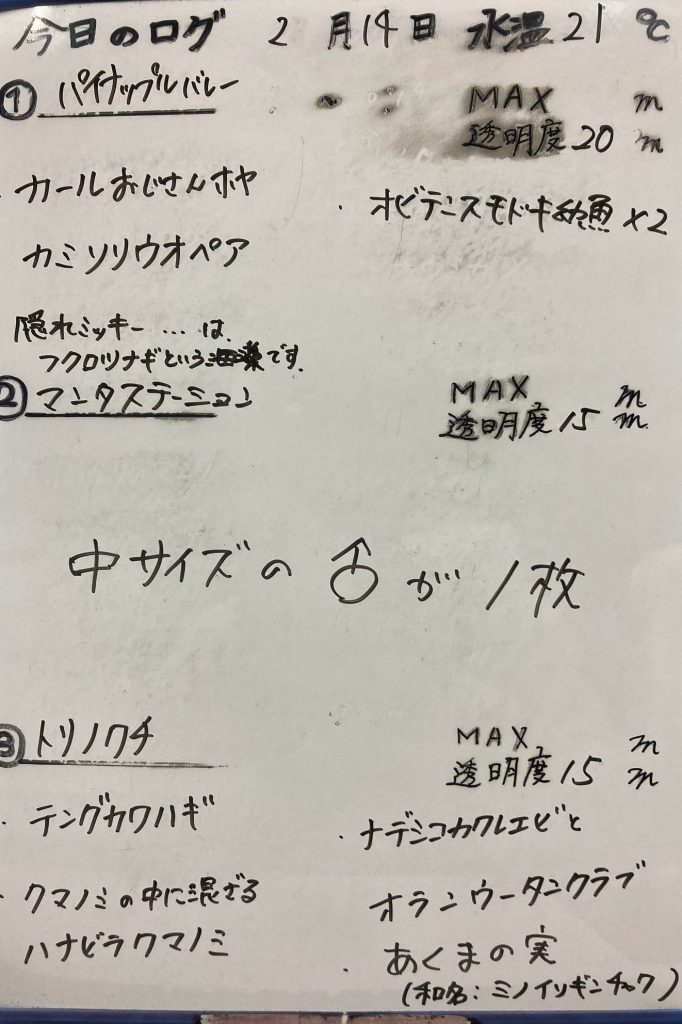 今日のログ 2月14日 水温21℃
① パイナップルバレー MAX m
透明度20m
・カールおじさんホヤ
・オビテンスモドキ幼魚×2
カミソリウオペア
隠れミッキー…は、
フクロツナギという海藻です。
② マンタステーション MAX m
透明度15m
中サイズの♂が1枚
③ トリノクチ MAX m
透明度15m
・テングカワハギ
・ナデシコカクレエビと
オランウータンクラブ
・クマノミの中に混ざる
ハナビラクマノミ
・あくまの実
(和名:ミノイソギンチャク)